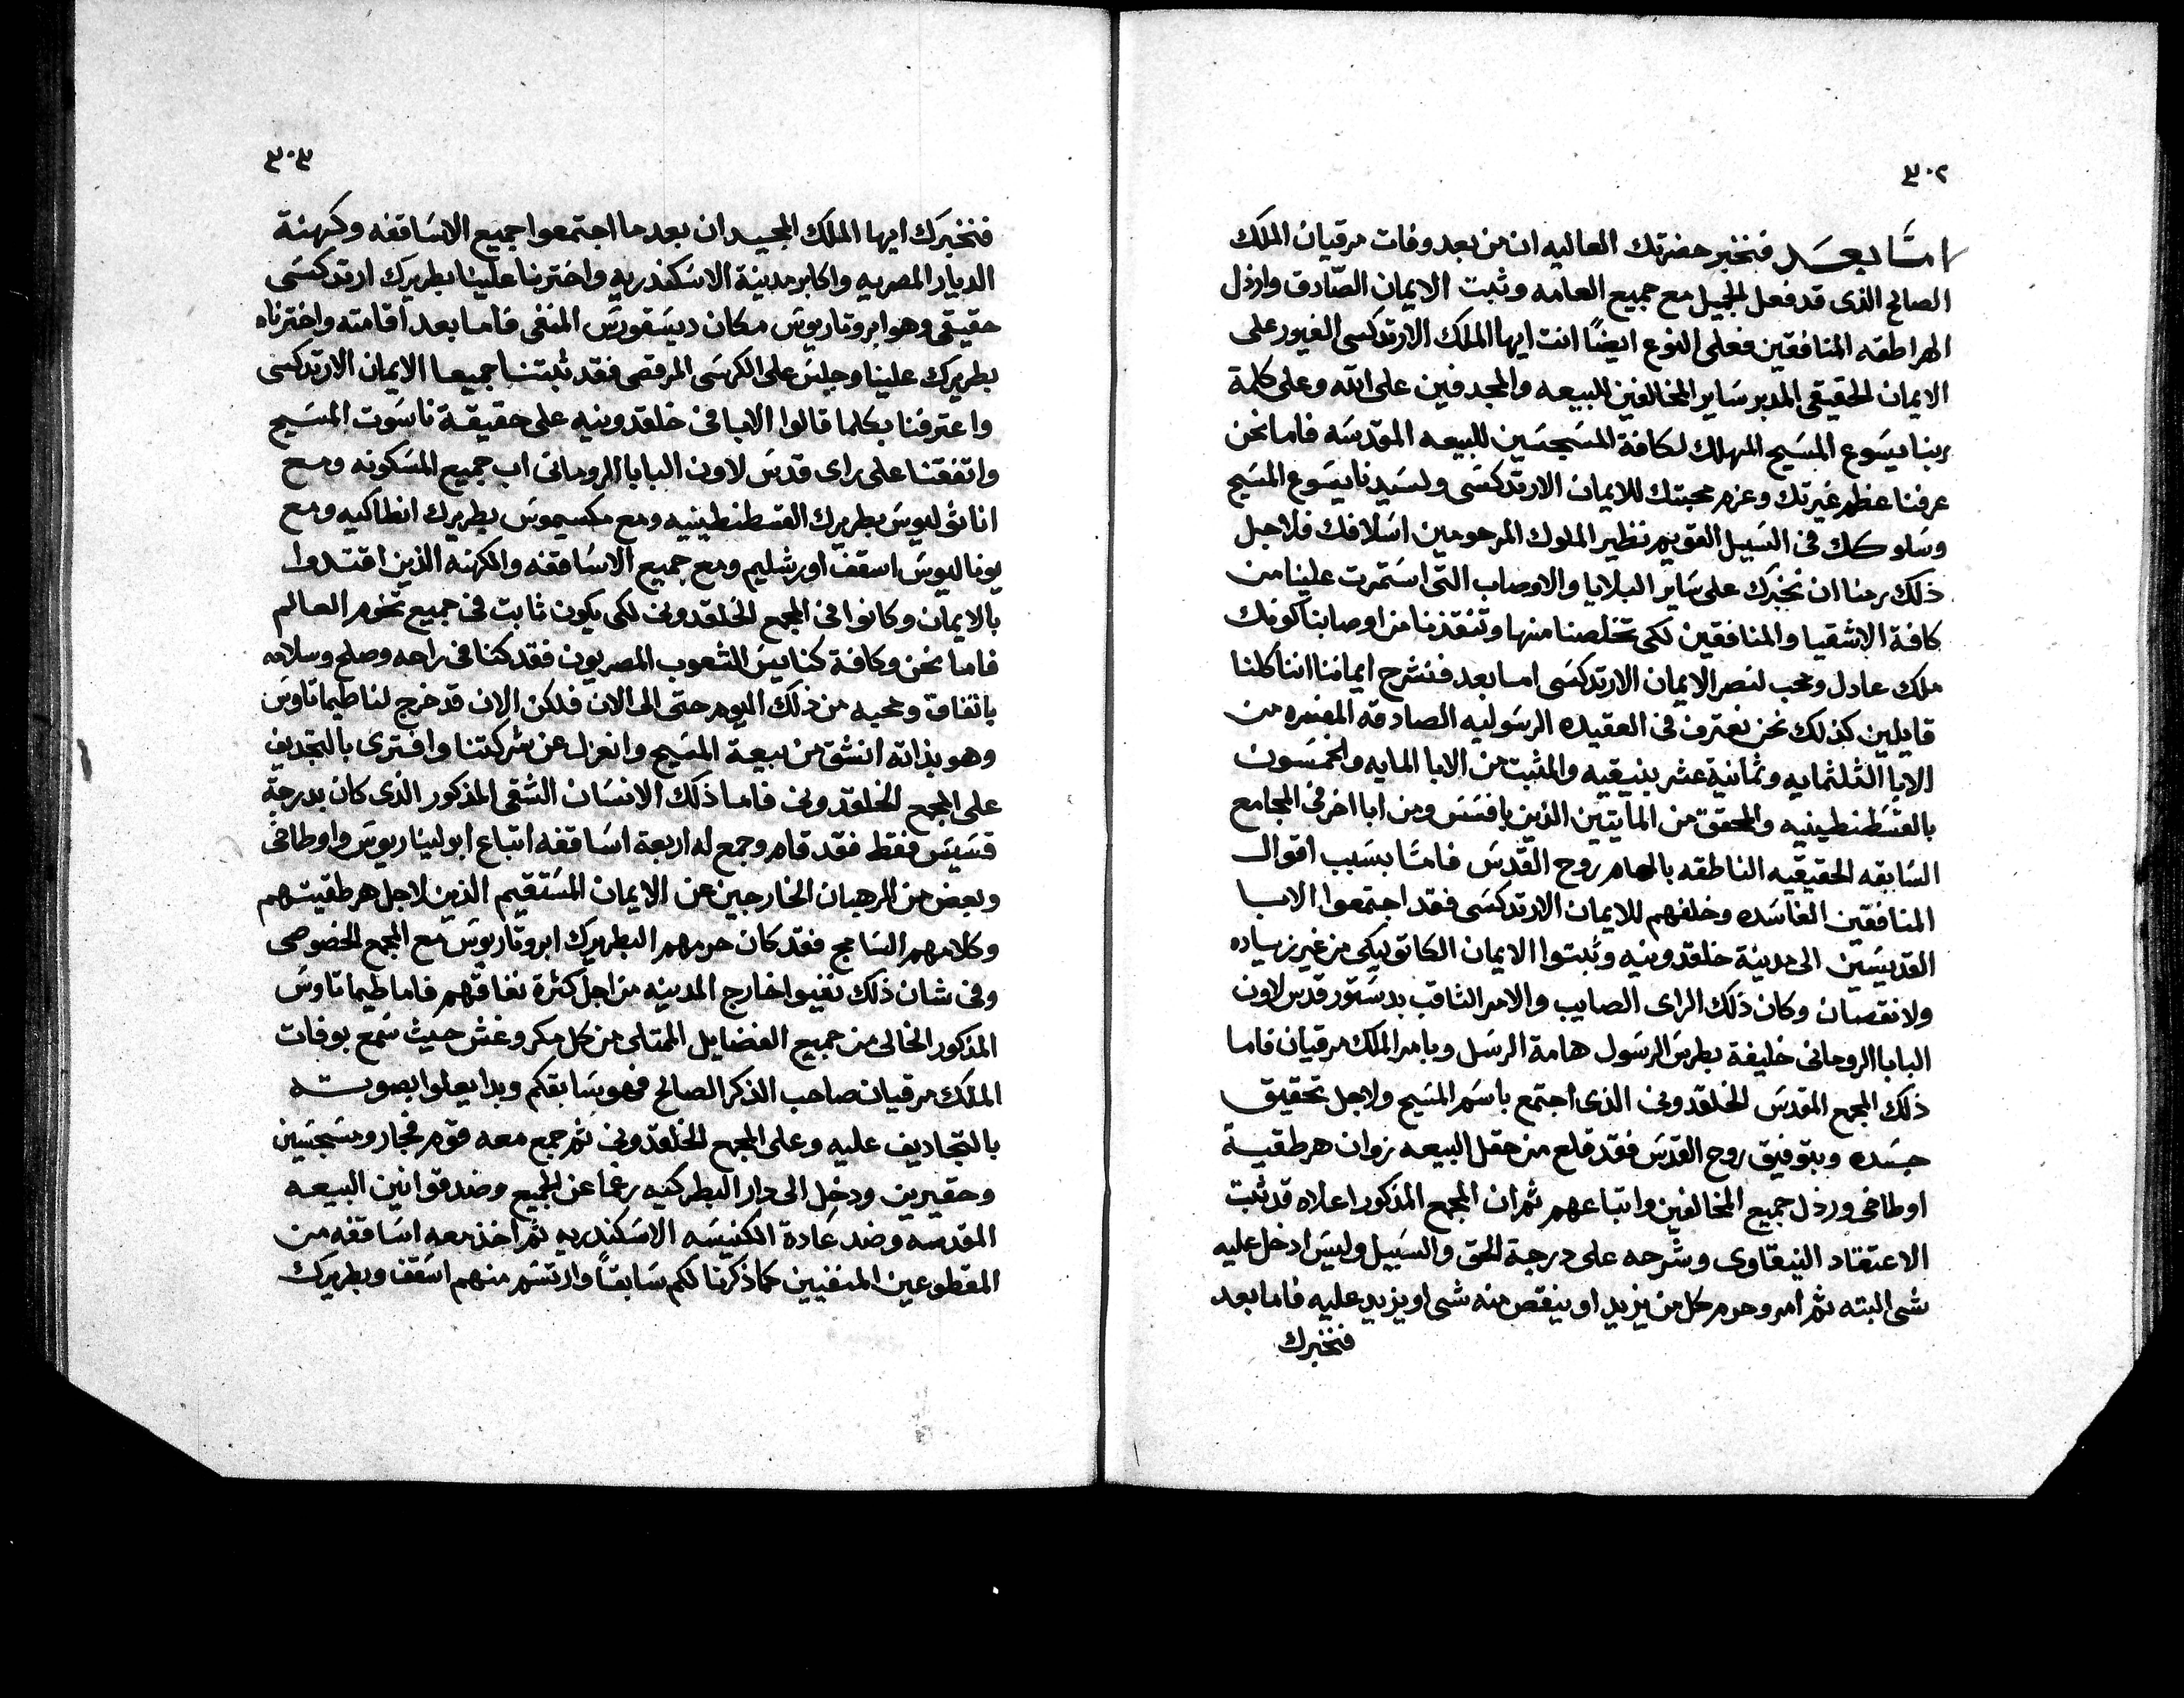 ٣٠٢
اما بعد فنخبر حضرتك العاليه ان من بعد وفات مرقيان الملك
الصالح الذى قد فعل الجميل مع جميع العامه وثبت الايمان الصادق وارذل
الهراطقه المنافقين فعلى النوع ايضًا انت ايها الملك الارتدكسى الغيور على
الايمان الحقيقى المدبر ساير المخالفين للبيعه والمجدفين على الله وعلى كلمة
ربنا يسوع المسيح المهلك لكافة المسجسين للبيعه المقدسه فاما نحن
عرفنا عظم غيرتك وعزم محبتك للايمان الارتدكسى ولسيدنا يسوع المسيح
وسلوكك فى السبيل القويم نظير الملوك المرحومين اسلافك فلاجل
ذلك رمنا ان نخبرك على ساير البلايا والاوصاب التى استمرت علينا من
كافة الاشقيا والمنافقين لكى تخلصنا منها وتنقذنا من اوصابنا كونك
ملك عادل ومحب لنصر الايمان الارتدكسى اما بعد فنشرح ايماننا اننا كلنا
قايلين كذلك نحن نعترف فى العقيده الرسوليه الصادقه المفسره من
الابا الثلثمايه وثمانية عشر بنيقيه والمثبت من الابا المايه والخمسون
بالقسطنطينيه والمحقق من المايتين الذين بافسس ومن ابا اخر فى المجامع
السابقه الحقيقيه الناطقه بالهام روح القدس فامّا بسبب اقوال
المنافقين الفاسده وخلفهم للايمان الارتدكسى فقد اجتمعوا الابا
القديسين الى مدينة خلقدونيه وثبتوا الايمان الكاتوليكى من غير زياده
ولا نقصان وكان ذلك الراى الصايب والامر الثاقب بدستور قدس لاون
البابا الرومانى خليفة بطرس الرسول هامة الرسل وبامر الملك مرقيان فاما
ذلك المجمع المقدس الخلقدونى الذى اجتمع باسم المسيح ولاجل تحقيق
جسده وبتوفيق روح القدس فقد قلع من حقل البيعه زوان هرطقية
اوطاخى ورذل جميع المخالفين واتباعهم ثم ان المجمع المذكور اعلاه قد ثبت
الاعتقاد النيقاوى وشرحه على درجة الحق والسبيل وليس ادخل عليه
شى البته ثم امر وحرم كل من يزيد او ينقص منه شى او يزيد عليه فاما بعد
فنخبرك
٣٠٣
فنخبرك ايها الملك المجيد ان بعدما اجتمعوا جميع الاساقفه وكهنة
الديار المصريه واكابر مدينة الاسكندريه واخترنا علينا بطريرك ارتدكسى
حقيقى وهو ابروتاريوس مكان ديسقورس المنفى فاما بعد اقامته واخترناه
بطريرك علينا وجلس على الكرسى المرقصى فقد ثبتنا جميعا الايمان الارتدكسى
واعترفنا بكلما قالوا الابا فى خلقدونيه على حقيقة ناسوت المسيح
واتفقنا على راى قدس لاون البابا الرومانى اب جميع المسكونه ومع
اناثوليوس بطريرك القسطنطينيه ومع مكسيموس بطريرك انطاكيه ومع
يوناليوس اسقف اورشليم ومع جميع الاساقفه والكهنه الذين اقتدوا
بالايمان وكانوا فى المجمع الخلقدونى لكى يكون ثابت فى جميع تخوم العالم
فاما نحن وكافة كنايس الشعوب المصريون فقد كنا فى راحه وصلح وسلامه
باتفاق ومحبه من ذلك اليوم حتى الى الان فلكن الان قد خرج لنا طيماتاوس
وهو بذاته انشق من بيعة المسيح وانعزل عن شركتنا وافترى بالتجديف
على المجمع الخلقدونى فاما ذلك الانسان الشقى المذكور الذى كان بدرجة
قسيس فقط فقد قام وجمع له اربعة اساقفه اتباع ابوليناريوس واوطاخى
وبعض من الرهبان الخارجين عن الايمان المستقيم الذين لاجل هرطقيتهم
وكلامهم السامج فقد كان حرمهم البطريرك ابروتاريوس مع المجمع الخصوصى
وفى شان ذلك نفيوا خارج المدينه من اجل كثرة نفاقهم فاما طيماتاوس
المذكور الخالى من جميع الفضايل الممتلى من كل مكر وغش حيث سمع بوفات
الملك مرقيان صاحب الذكر الصالح فهو سابقكم وبدا يعلوا بصوته
بالتجاديف عليه وعلى المجمع الخلقدونى ثم جمع معه قوم فجار ومسجسين
وحقيرين ودخل الى دار البطركيه رغما عن الجميع وضد قوانين البيعه
المقدسه وضد عادة الكنيسه الاسكندريه ثم اخذ معه اساقفه من
المقطوعين المنفيين كما ذكرنا لكم سابقاً وارتسم منهم اسقف وبطريرك